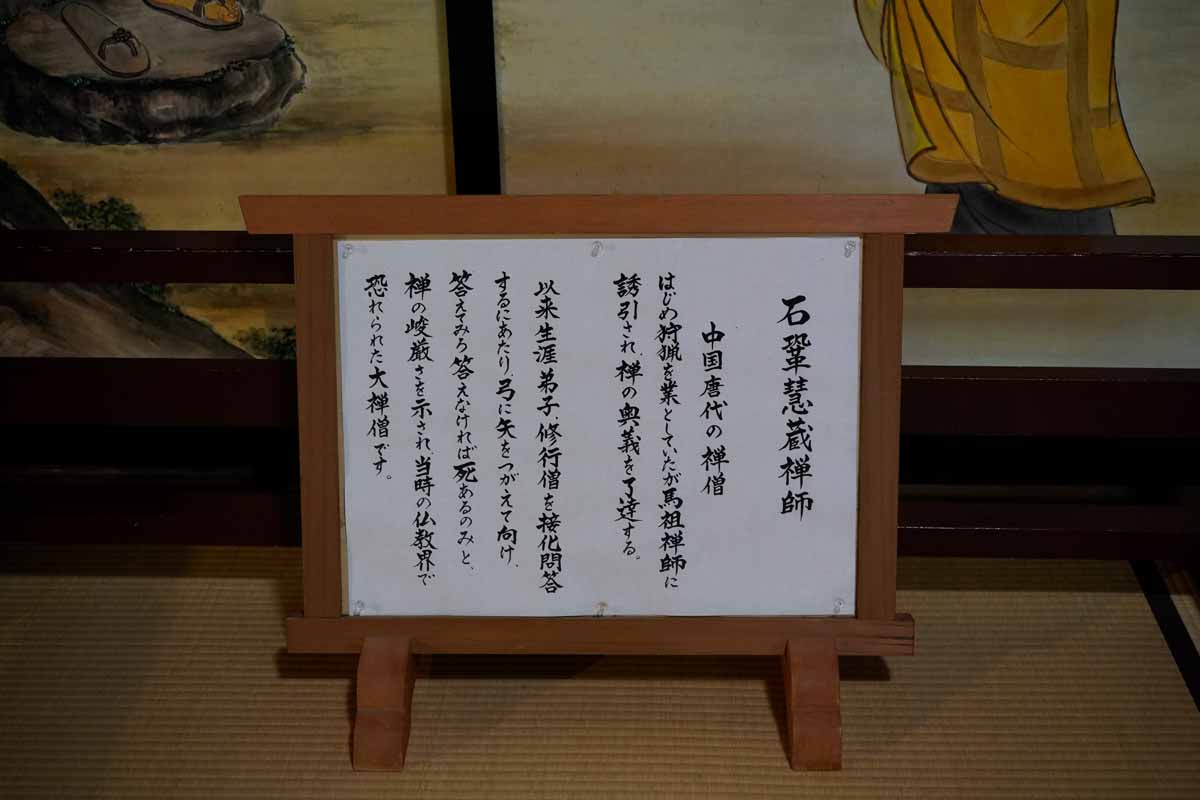 石鞏慧蔵禅師
中国唐代の禅僧
はじめ狩猟を業としていたが馬祖禅師に
誘引され、禅の奥義を了達する。
以来生涯弟子、修行僧を接化問答
するにあたり、弓に矢をつがえて向け、
答えてみろ答えなければ死あるのみと、
禅の峻厳さを示され、当時の仏教界で
恐れられた大禅僧です。